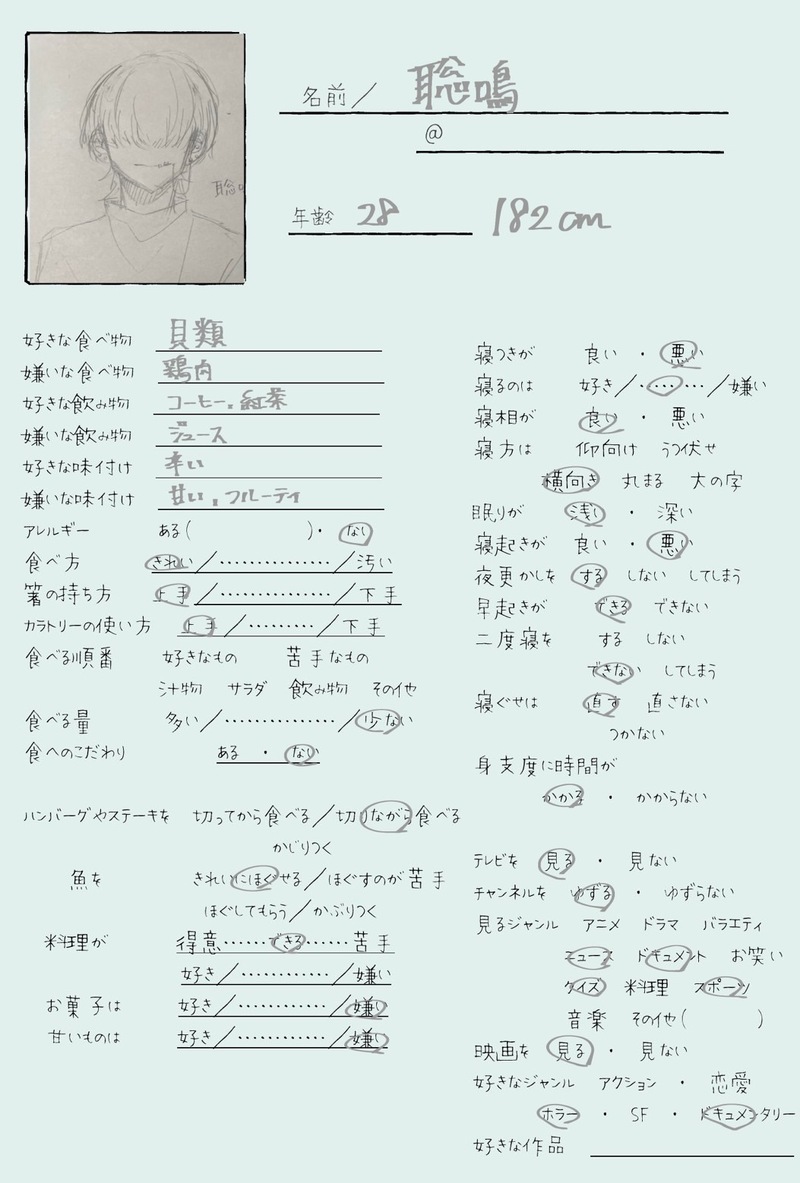 聡
名前／ 聡鳴
@
年齢 28 182cm
好きな食べ物 貝類
嫌いな食べ物 鶏肉
好きな飲み物 コーヒー、紅茶
嫌いな飲み物 ジュース
好きな味付け 辛い
嫌いな味付け 甘い、フルーティ
アレルギー ある( )・ ない
食べ方 きれい／……………／汚い
箸の持ち方 上手／……………／下手
カラトリーの使い方 上手／………／下手
食べる順番 好きなもの 苦手なもの
汁物 サラダ 飲み物 その他
食べる量 多い／……………／少ない
食へのこだわり ある ・ ない
ハンバーグやステーキを 切ってから食べる／切りながら食べる
かじりつく
魚を きれいにほぐせる／ほぐすのが苦手
ほぐしてもらう／かぶりつく
料理が 得意……できる……苦手
好き／…………／嫌い
お菓子は 好き／…………／嫌い
甘いものは 好き／…………／嫌い
寝つきが 良い ・ 悪い
寝るのは 好き／………／嫌い
寝相が 良い ・ 悪い
寝方は 仰向け うつ伏せ
横向き 丸まる 大の字
眠りが 浅い ・ 深い
寝起きが 良い ・ 悪い
夜更かしを する しない してしまう
早起きが できる できない
二度寝を する しない
できない してしまう
寝ぐせは 直す 直さない
つかない
身支度に時間が
かかる ・ かからない
テレビを 見る ・ 見ない
チャンネルを ゆずる ・ ゆずらない
見るジャンル アニメ ドラマ バラエティ
ニュース ドキュメント お笑い
クイズ 料理 スポーツ
音楽 その他( )
映画を 見る ・ 見ない
好きなジャンル アクション ・ 恋愛
ホラー ・ SF ・ ドキュメンタリー
好きな作品